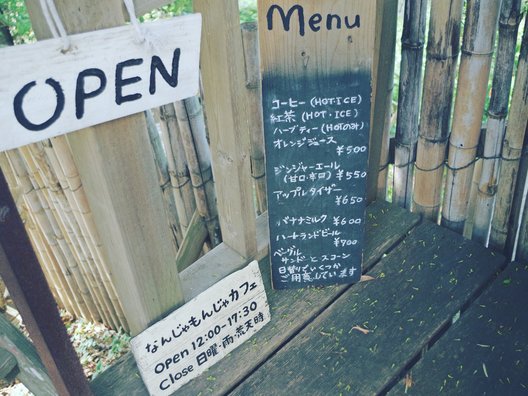 OPEN
Menu
コーヒー (HOT・ICE)
紅茶 (HOT・ICE)
ハーブティー (HOTのみ)
オレンジジュース
¥500
ジンジャーエール
(甘口・辛口) ¥550
アップルタイザー
¥650
バナナミルク ¥600
ハートランドビール
¥700
ベーグル
サンドとスコーン
日替りでいくつか
ご用意しています
なんじゃもんじゃカフェ
OPEN 12:00-17:30
Close 日曜・雨・荒天時